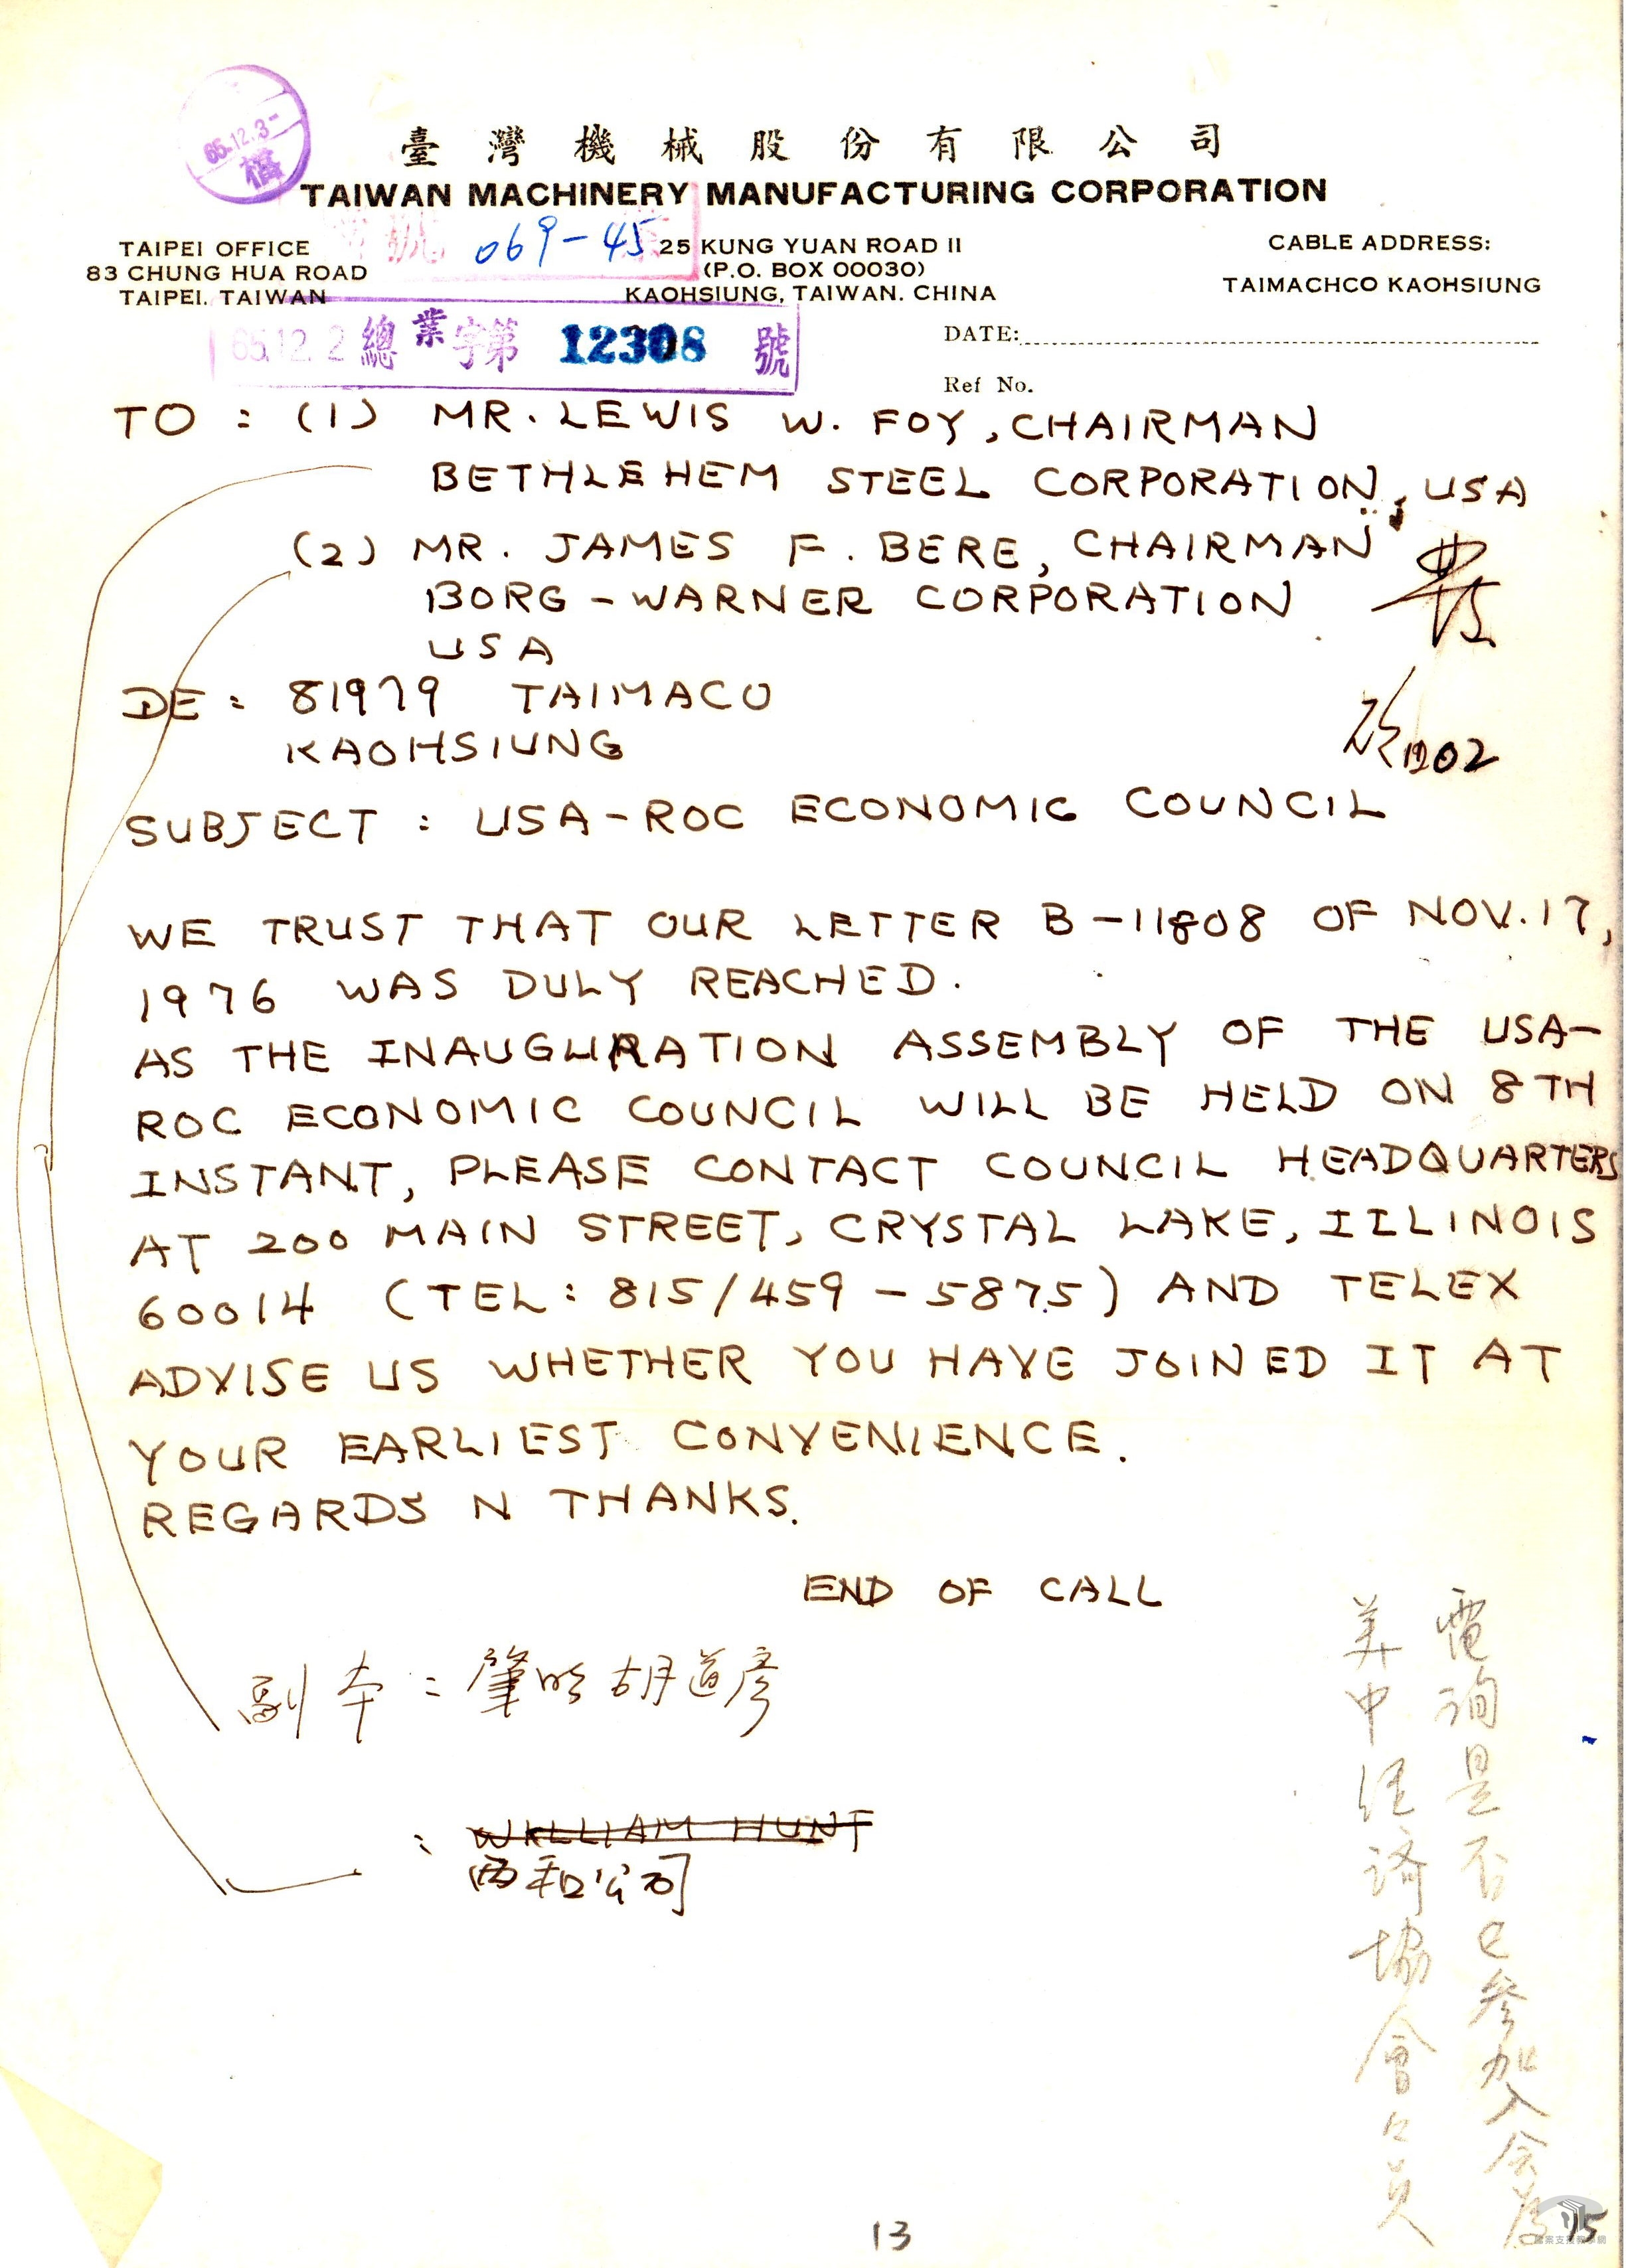 65.12.3
臺灣機械股份有限公司
TAIWAN MACHINERY MANUFACTURING CORPORATION
號 069-45
TAIPEI OFFICE
83 CHUNG HUA ROAD
TAIPEI. TAIWAN
25 KUNG YUAN ROAD II
(P.O. BOX 00030)
KAOHSIUNG, TAIWAN. CHINA
CABLE ADDRESS:
TAIMACHCO KAOHSIUNG
65.12.2 總業字第 12308 號
DATE:
Ref No.
TO : (1) MR. LEWIS W. FOY, CHAIRMAN
BETHLEHEM STEEL CORPORATION, USA
(2) MR. JAMES F. BERE, CHAIRMAN
BORG-WARNER CORPORATION
USA
DE : 81979 TAIMACO
KAOHSIUNG
1202
SUBJECT : USA-ROC ECONOMIC COUNCIL
WE TRUST THAT OUR LETTER B-11808 OF NOV. 17,
1976 WAS DULY REACHED.
AS THE INAUGURATION ASSEMBLY OF THE USA-
ROC ECONOMIC COUNCIL WILL BE HELD ON 8TH
INSTANT, PLEASE CONTACT COUNCIL HEADQUARTERS
AT 200 MAIN STREET, CRYSTAL LAKE, ILLINOIS
60014 (TEL: 815/459-5875) AND TELEX
ADVISE US WHETHER YOU HAVE JOINED IT AT
YOUR EARLIEST CONVENIENCE.
REGARDS N THANKS.
END OF CALL
副本：肇明胡道彦
: WILLIAM HUNT
西和公司
電詢是否已參加入会為
美中經濟協會之員
13
15
檔案支援教學網